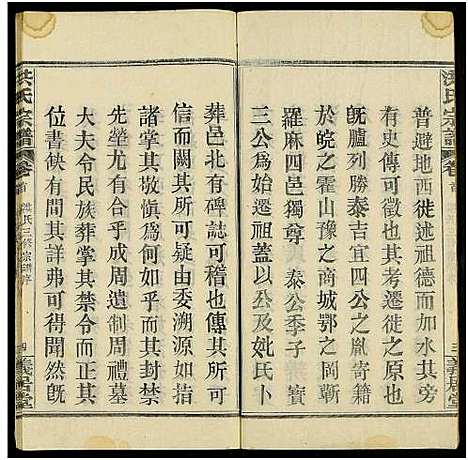 洪氏宗譜
卷首
三
義居堂
普避地西徙述祖德而加水其旁
歷歷可徵也其考遷徙之原也
既臚列勝泰吉宜四公之胤寄籍
於皖之霍山豫之商城鄂之岡蘄
羅麻四邑獨尊 泰公季子 寳
三公為始遷祖蓋以公及妣氏卜
葬邑北有碑可稽也傳其所可
信而闕其所可疑由委溯源如指
諸掌其敬慎為何如乎而其封禁
先塋尤有合於成周之禮墓
大夫令民族葬掌其禁令而正其
位書缺有間其詳弗可得聞然旣
洪氏宗譜
卷首
洪氏三修宗譜序
四
義居堂